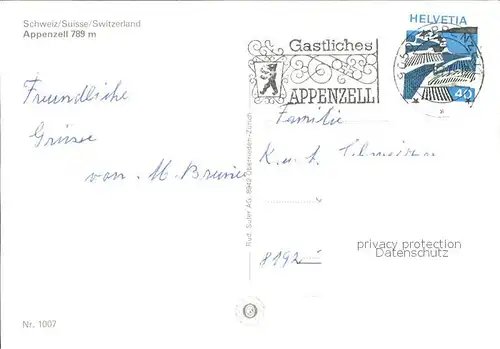 Schweiz/Suisse/Switzerland
Appenzell 789 m
HELVETIA
40
Gastliches
APPENZELL
Freundliche
Grüsse
von M. Brunne
Familie
K. u.
8192
Rud. Suter AG, 8942 Oberrieden-Zürich
privacy protection
Datenschutz
Nr. 1007